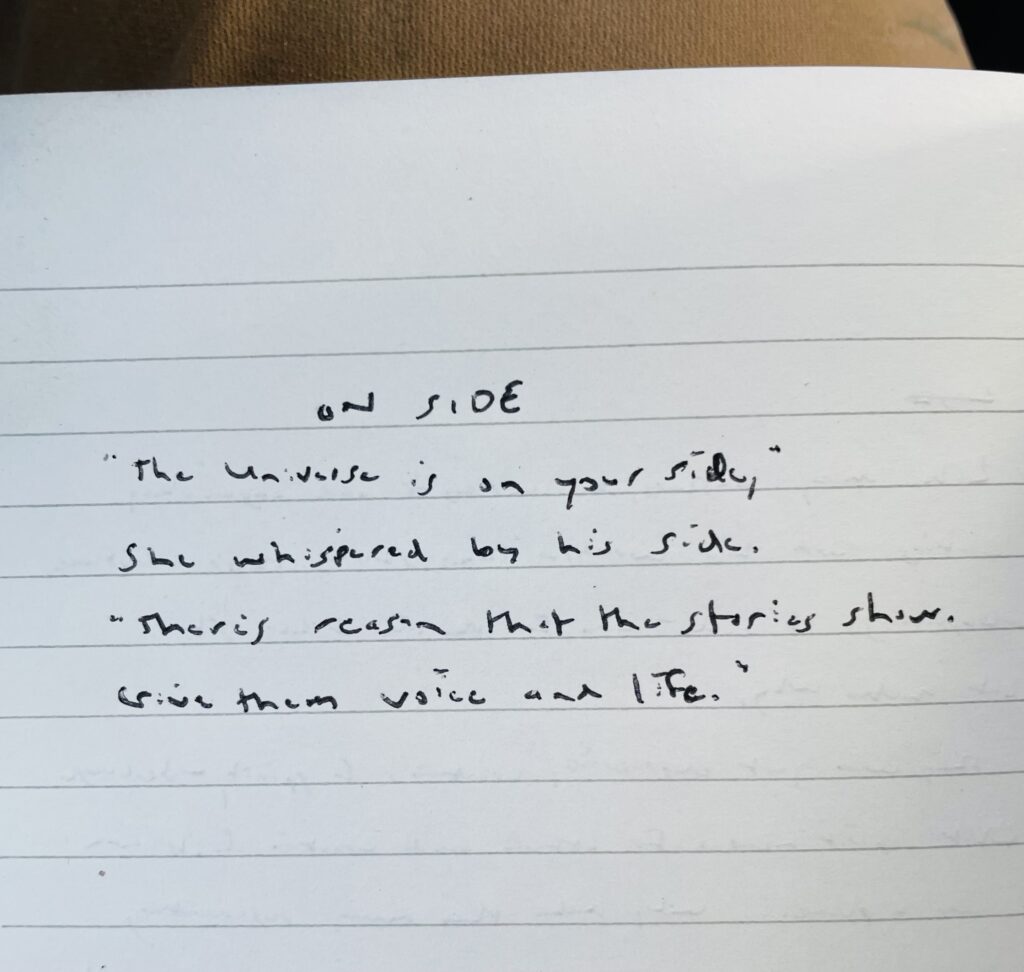 ON SIDE
"The universe is on your side,"
She whispered by his side.
"Ther is reason that the stories show.
Give them voice and life."